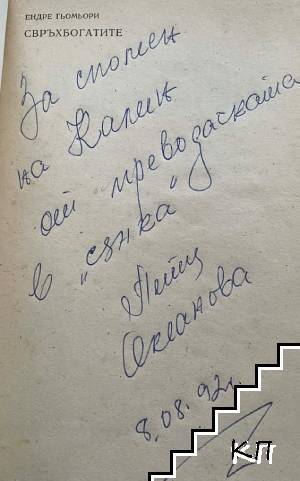 ЕНДРЕ ГЬОМЬОРИ
СВРЪХБОГАТИТЕ
За спомен
на Калин
от преводачката
в "сянка"
Пепи
Океанова
8.08.92г.
КП